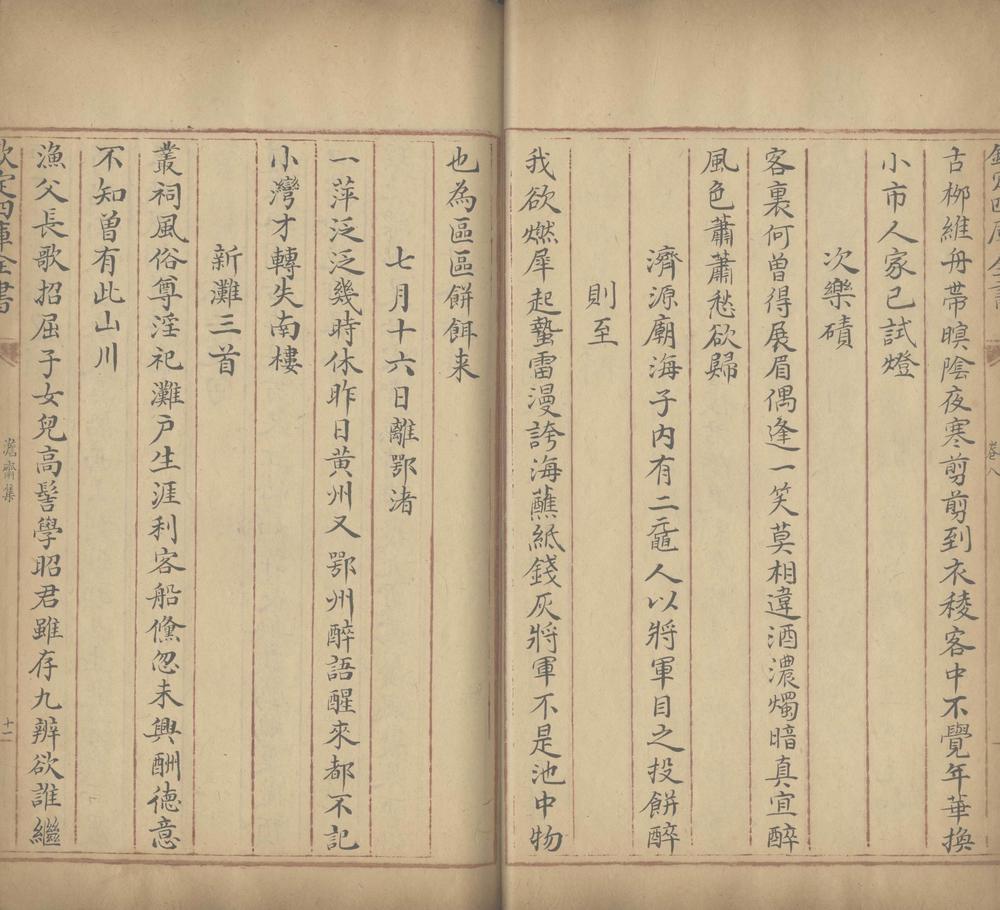 古栁維舟帶暝陰夜寒剪剪到衣稜客中不覺年華換
小市人家已試燈
次樂磧
客裏何曾得展眉偶逢一笑莫相違酒濃燭暗真宜醉
風色蕭蕭愁欲歸
濟源廟海子内有二黿人以將軍目之投餅醉
則至
我欲燃犀起蟄雷漫誇海蘸紙錢灰將軍不是池中物
也為區區餅餌来
七月十六日離鄂渚
一萍泛泛幾時休昨日黄州又鄂州醉語醒來都不記
小灣才轉失南樓
新灘三首
叢祠風俗尊淫祀灘户生涯利客船儵忽未興酬德意
不知曽有此山川
漁父長歌招屈子女兒高髻學昭君雖存九辨欲誰繼
欽定四庫全書
澹齋集
十二
卷八